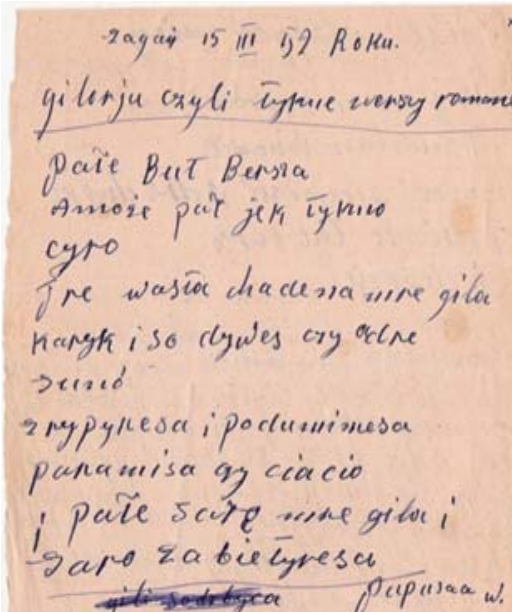 żagań 15 III 52 Roku.
gilorju czyli tykne werszy romane
pałe But Bersia
Amoże pał jek tykno
cyro
Tre wasta chadena mre gila
Karyk i so dywes czy odre
suno
zrypyresa i podumimesa
paramisa czy ciacio
i pałe sarę mre gila i
saro zabietyresa
Papusza w.